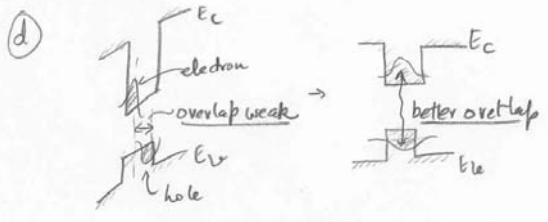 d
Ec
electron
overlap weak
→
Ev
hole
Ec
better overlap
Ev